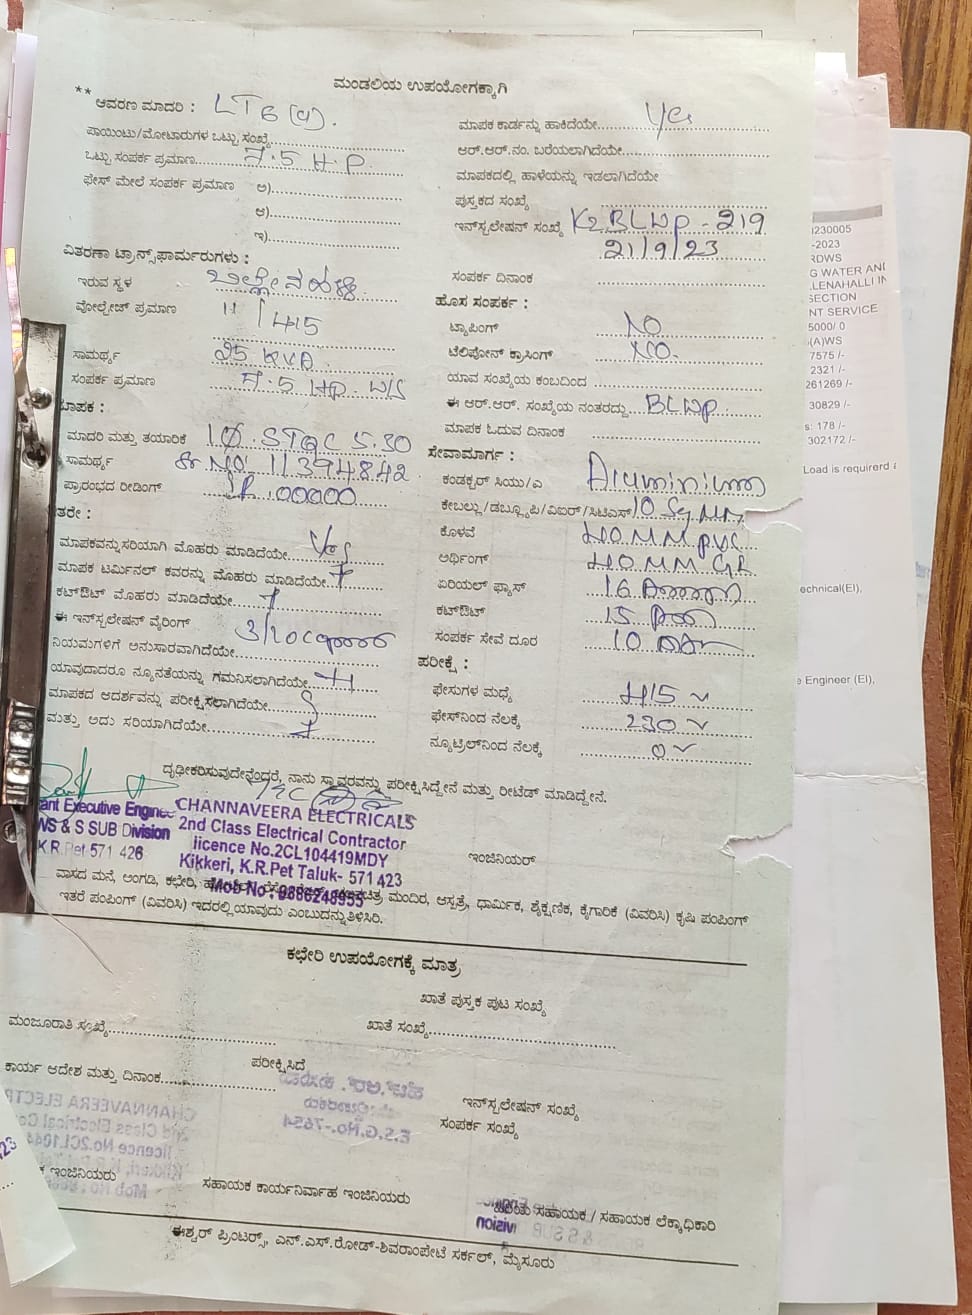 ಮಂಡಲಿಯ ಉಪಯೋಗಕ್ಕಾಗಿ
** ಆವರಣ ಮಾದರಿ : LT6(a).
ಪಾಯಿಂಟು/ಮೋಟಾರುಗಳ ಒಟ್ಟು ಸಂಖ್ಯೆ
ಒಟ್ಟು ಸಂಪರ್ಕ ಪ್ರಮಾಣ 7.5 H.P.
ಫೇಸ್ ಮೇಲೆ ಸಂಪರ್ಕ ಪ್ರಮಾಣ ಅ)
ಆ)
ಇ)
ವಿತರಣಾ ಟ್ರಾನ್ಸ್‌ಫಾರ್ಮರುಗಳು :
ಇರುವ ಸ್ಥಳ
ವೋಲ್ಟೇಜ್ ಪ್ರಮಾಣ 11/415
ಸಾಮರ್ಥ್ಯ 25 KVA
ಸಂಪರ್ಕ ಪ್ರಮಾಣ 7.5 HP W/S
ಮಾದರಿ ಮತ್ತು ತಯಾರಿಕೆ STQC 5.30
ಸಾಮರ್ಥ್ಯ Sr No 11394842
ಪ್ರಾರಂಭದ ರೀಡಿಂಗ್ IR 00000
ತರೇ :
ಮಾಪಕವನ್ನು ಸರಿಯಾಗಿ ಮೊಹರು ಮಾಡಿದೆಯೇ Yes
ಮಾಪಕ ಟರ್ಮಿನಲ್ ಕವರನ್ನು ಮೊಹರು ಮಾಡಿದೆಯೇ
ಕಟ್‌ಔಟ್ ಮೊಹರು ಮಾಡಿದೆಯೇ
ಈ ಇನ್‌ಸ್ಟಲೇಷನ್ ವೈರಿಂಗ್
ನಿಯಮಗಳಿಗೆ ಅನುಸಾರವಾಗಿದೆಯೇ
ಯಾವುದಾದರೂ ನ್ಯೂನತೆಯನ್ನು ಗಮನಿಸಲಾಗಿದೆಯೇ
ಮಾಪಕದ ಆದರ್ಶವನ್ನು ಪರೀಕ್ಷಿಸಲಾಗಿದೆಯೇ
ಮತ್ತು ಅದು ಸರಿಯಾಗಿದೆಯೇ
ಮಾಪಕ ಕಾರ್ಡನ್ನು ಹಾಕಿದೆಯೇ Yes
ಆರ್.ಆರ್.ನಂ. ಬರೆಯಲಾಗಿದೆಯೇ
ಮಾಪಕದಲ್ಲಿ ಹಾಳೆಯನ್ನು ಇಡಲಾಗಿದೆಯೇ
ಪುಸ್ತಕದ ಸಂಖ್ಯೆ
ಇನ್‌ಸ್ಟಲೇಷನ್ ಸಂಖ್ಯೆ K2BLWP-219
21/9/23
ಸಂಪರ್ಕ ದಿನಾಂಕ
ಹೊಸ ಸಂಪರ್ಕ :
ಟ್ಯಾಪಿಂಗ್ NO
ಟೆಲಿಫೋನ್ ಕ್ರಾಸಿಂಗ್ NO
ಯಾವ ಸಂಖ್ಯೆಯ ಕಂಬದಿಂದ
ಈ ಆರ್.ಆರ್. ಸಂಖ್ಯೆಯ ನಂತರದ್ದು BLWP
ಮಾಪಕ ಓದುವ ದಿನಾಂಕ
ಸೇವಾಮಾರ್ಗ :
ಕಂಡಕ್ಟರ್ ಸಿಯು/ಎ Aluminium
ಕೇಬಲ್ಲು/ಡಬ್ಲ್ಯೂಪಿ/ವಿಐರ್/ಸಿಟಿಎಸ್ 10 Sq MM
ಕೊಳವೆ 40 MM PVC
ಅರ್ಥಿಂಗ್ 40 MM GI
ಏರಿಯಲ್ ಫ್ಯೂಸ್ 16
ಕಟ್‌ಔಟ್ 15
ಸಂಪರ್ಕ ಸೇವೆ ದೂರ 10
ಪರೀಕ್ಷೆ :
ಫೇಸುಗಳ ಮಧ್ಯೆ 415 v
ಫೇಸ್‌ನಿಂದ ನೆಲಕ್ಕೆ 230 v
ನ್ಯೂಟ್ರಲ್‌ನಿಂದ ನೆಲಕ್ಕೆ 0 v
ದೃಢೀಕರಿಸುವುದೇನೆಂದರೆ, ನಾನು ಸ್ಥಾವರವನ್ನು ಪರೀಕ್ಷಿಸಿದ್ದೇನೆ ಮತ್ತು ರೀಟೆಡ್ ಮಾಡಿದ್ದೇನೆ.
ant Executive Enginee
WS & S SUB Division
K.R.Pet 571 426
CHANNAVEERA ELECTRICALS
2nd Class Electrical Contractor
licence No.2CL104419MDY
Kikkeri, K.R.Pet Taluk- 571 423
Mob No : 9886248955
ಇಂಜಿನಿಯರ್
ವಾಸದ ಮನೆ, ಅಂಗಡಿ, ಕಛೇರಿ, ಮಂದಿರ, ಆಸ್ಪತ್ರೆ, ಧಾರ್ಮಿಕ, ಶೈಕ್ಷಣಿಕ, ಕೈಗಾರಿಕೆ (ವಿವರಿಸಿ) ಕೃಷಿ ಪಂಪಿಂಗ್
ಇತರೆ ಪಂಪಿಂಗ್ (ವಿವರಿಸಿ) ಇದರಲ್ಲಿ ಯಾವುದು ಎಂಬುದನ್ನು ತಿಳಿಸಿರಿ.
ಕಛೇರಿ ಉಪಯೋಗಕ್ಕೆ ಮಾತ್ರ
ಖಾತೆ ಪುಸ್ತಕ ಪುಟ ಸಂಖ್ಯೆ
ಮಂಜೂರಾತಿ ಸಂಖ್ಯೆ
ಖಾತೆ ಸಂಖ್ಯೆ
ಪರೀಕ್ಷಿಸಿದೆ
ಕಾರ್ಯ ಆದೇಶ ಮತ್ತು ದಿನಾಂಕ
ಇನ್‌ಸ್ಟಲೇಷನ್ ಸಂಖ್ಯೆ
ಸಂಪರ್ಕ ಸಂಖ್ಯೆ
ಇಂಜಿನಿಯರು
ಸಹಾಯಕ ಕಾರ್ಯನಿರ್ವಾಹ ಇಂಜಿನಿಯರು
ಸಹಾಯಕ / ಸಹಾಯಕ ಲೆಕ್ಕಾಧಿಕಾರಿ
ಈಶ್ವರ್ ಪ್ರಿಂಟರ್ಸ್, ಎನ್.ಎಸ್.ರೋಡ್-ಶಿವರಾಂಪೇಟೆ ಸರ್ಕಲ್, ಮೈಸೂರು
I230005
-2023
RDWS
G WATER AND
LENAHALLI IN
SECTION
NT SERVICE
5000/ 0
(A)WS
7575 /-
2321 /-
261269 /-
30829 /-
s: 178 /-
302172 /-
Load is requirerd
echnical(EI),
e Engineer (EI),